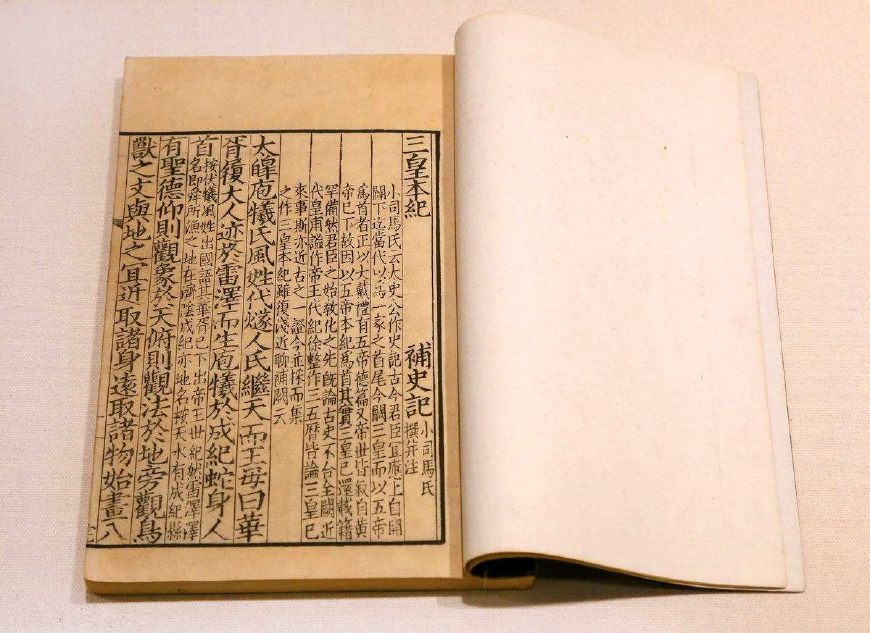 三皇本紀 補史記 小司馬氏
撰并注
小司馬氏云太史公作史記古今君臣宜應上自開
闢下迄當代以爲一家之首尾今闕三皇而以五帝
爲首者正以大戴禮有五帝德篇又帝世皆叙自黃
帝已下故因以五帝本紀爲首其實三皇已還載籍
罕備然君臣之始教化之先旣論古史不合全闕近
代皇甫謐作帝王代紀徐整作三五曆皆論三皇已
來事斯亦近古之一證今並採而集
之作三皇本紀雖復淺近聊補闕云
太皞庖犧氏風姓代燧人氏繼天而王母曰華
胥履大人迹於雷澤而生庖犧於成紀蛇身人
首 按伏犧風姓出國語其華胥已下出帝王世紀然雷澤澤
名即舜所漁之地在濟陰成紀亦地名按天水有成紀縣
有聖德仰則觀象於天俯則觀法於地旁觀鳥
獸之文與地之宜近取諸身遠取諸物始畫八